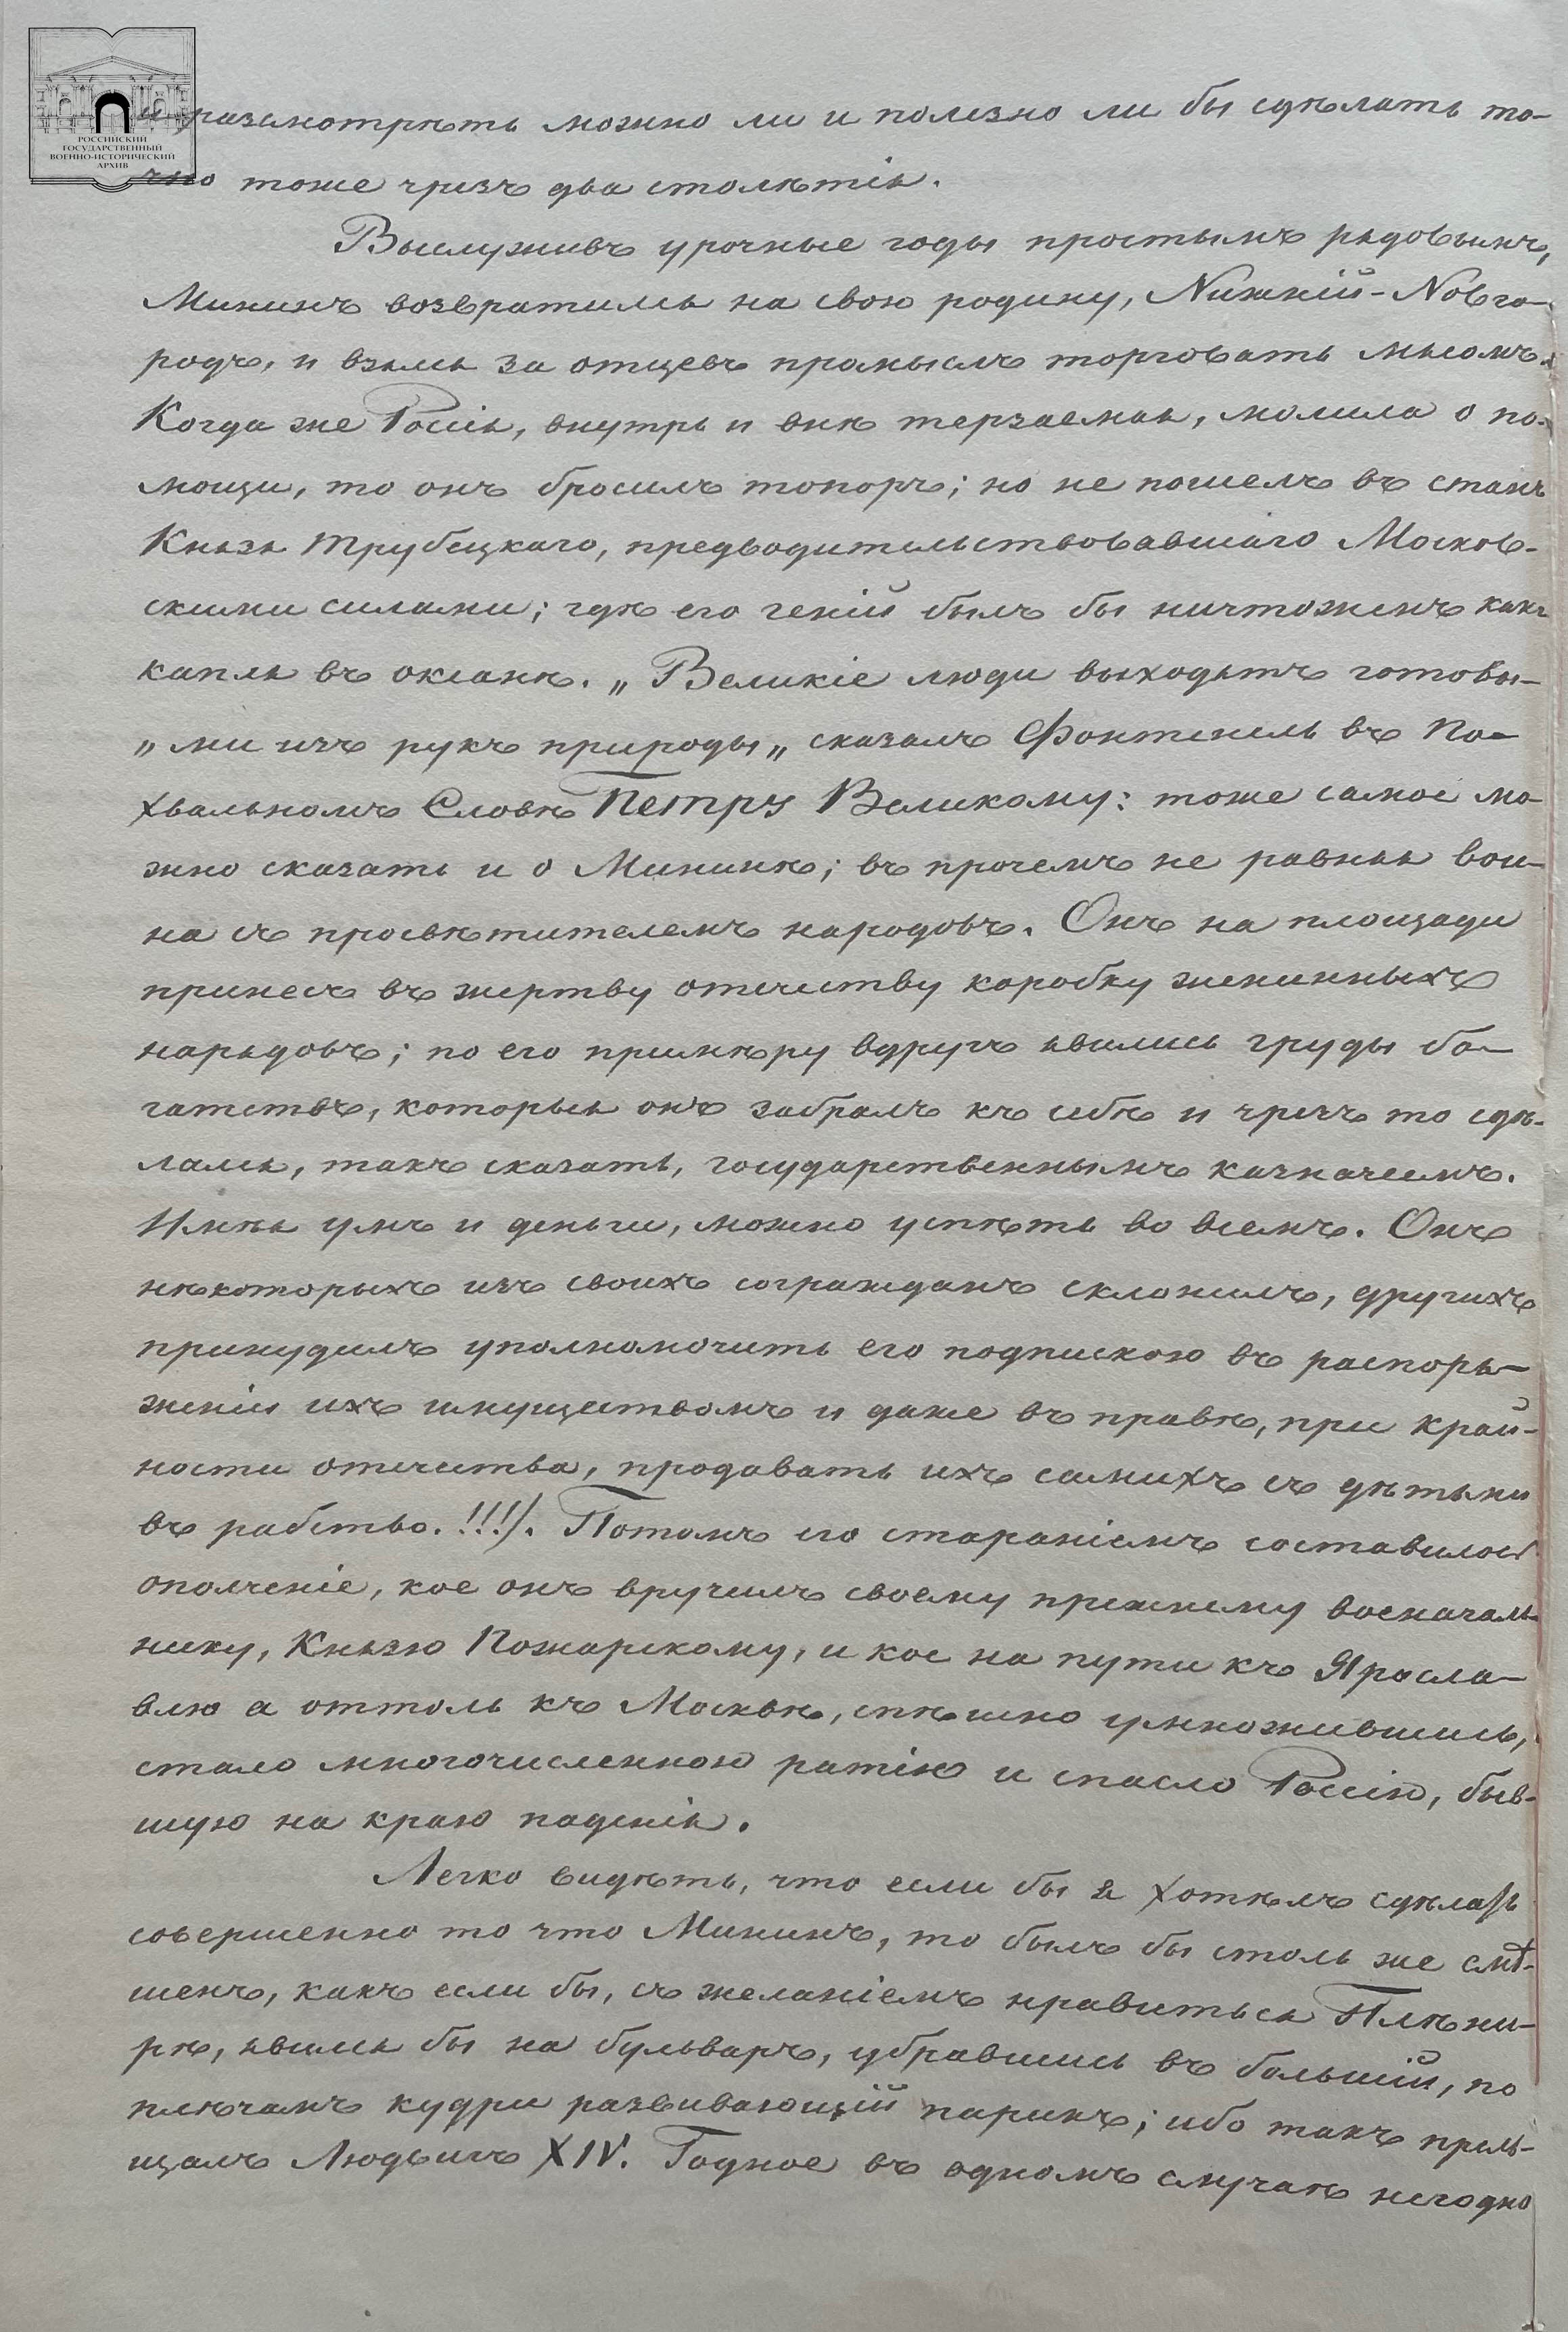 РОССИЙСКИЙ
ГОСУДАРСТВЕННЫЙ
ВОЕННО-ИСТОРИЧЕСКИЙ
АРХИВ
и разсмотрѣть можно ли и полезно ли бы сдѣлать то-
чно тоже чрезъ два столѣтія.
Выслуживъ урочные годы простымъ рядовымъ,
Мининъ возвратился на свою родину, Нижній-Новго-
родъ, и взялся за отцевъ промыслъ торговать мясомъ.
Когда же Россія, внутрь и внѣ терзаемая, молила о по-
мощи, то онъ бросилъ топоръ; но не пошелъ въ станъ
Князя Трубецкаго, предводительствовавшаго Москов-
скими силами; гдѣ его геній былъ бы ничтоженъ какъ
капля въ океанѣ. „Великіе люди выходятъ готовы-
„ми изъ рукъ природы„ сказалъ Фонтенель въ По-
хвальномъ Словѣ Петру Великому: тоже самое мо-
жно сказать и о Мининѣ; въ прочемъ не равняя вои-
на съ просвѣтителемъ народовъ. Онъ на площади
принесъ въ жертву отечеству коробку жениныхъ
нарядовъ; по его примѣру вдругъ явились груды бо-
гатствъ, которыя онъ забралъ къ себѣ и чрезъ то сдѣ-
лался, такъ сказать, государственнымъ казначеемъ.
Имѣя умъ и деньги, можно успѣть во всемъ. Онъ
нѣкоторыхъ изъ своихъ согражданъ склонилъ, другихъ
принудилъ уполномочить его подпискою въ распоря-
женіи ихъ имуществомъ и даже въ правѣ, при край-
ности отечества, продавать ихъ самихъ съ дѣтьми
въ рабство. !!!/. Потомъ его стараніемъ составилось
ополченіе, кое онъ вручилъ своему прежнему военачаль-
нику, Князю Пожарскому, и кое на пути къ Яросла-
влю а оттоль къ Москвѣ, спѣшно умножившись,
стало многочисленною ратію и спасло Россію, быв-
шую на краю паденія.
Легко видѣть, что если бы я хотѣлъ сдѣлать
совершенно то что Мининъ, то былъ бы столь же смѣ-
шенъ, какъ если бы, съ желаніемъ нравиться Плѣни-
рѣ, явился бы на бульваръ, убравшись въ большій, по
плечамъ кудри развивающій парикъ; ибо такъ прель-
щалъ Людвигъ XIV. Годное въ одномъ случаѣ негодно